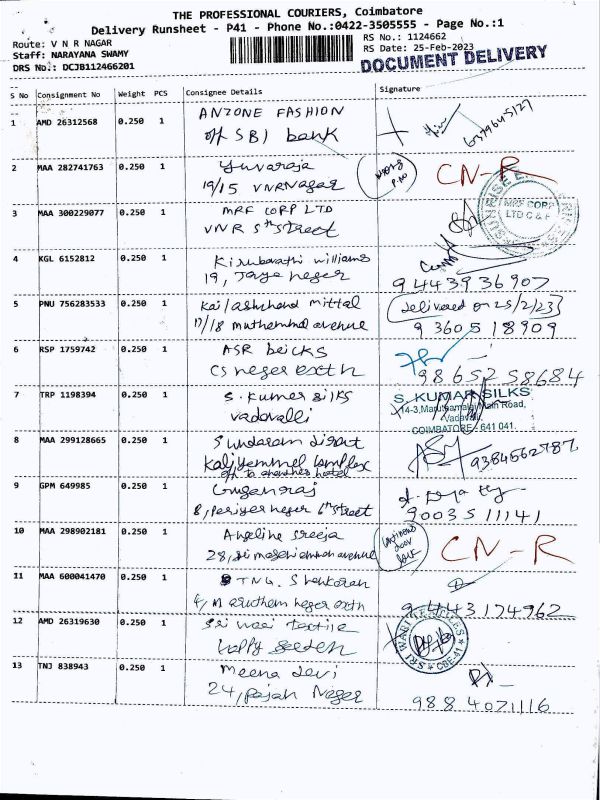 THE PROFESSIONAL COURIERS, Coimbatore
Delivery Runsheet - P41 - Phone No.:0422-3505555 - Page No.:1
Route: V N R NAGAR
Staff: NARAYANA SWAMY
DRS No.: DCJB112466201
RS No.: 1124662
RS Date: 25-Feb-2023
DOCUMENT DELIVERY
S No Consignment No Weight PCS Consignee Details Signature
1 AMD 26312568 0.250 1 ANZONE FASHION
off SBI bank
2 MAA 282741763 0.250 1 Yuvaraja CN-R
19/15 VNRNagar
3 MAA 300229077 0.250 1 MRF CORP LTD
VNR 5th Street
MRF CORP
LTD C & F
4 KGL 6152812 0.250 1 Kirubarathi williams
19, Jaya neger 9443936907
5 PNU 756283533 0.250 1 Kailashchand mittal delivered on 25/2/23
17/18 muthammal avenue 9360518909
6 RSP 1759742 0.250 1 ASR bricks
CS neger exth 9865258684
7 TRP 1198394 0.250 1 S. Kumar Silks
vadavalli
S. KUMAR SILKS
14-3, Maruthamalai Main Road,
Vadavalli,
COIMBATORE - 641 041.
8 MAA 299128665 0.250 1 Sundaram
Kaliyammal Complex 9384562787
9 GPM 649985 0.250 1 Gugan raj
8, Periyar neger 6th Street 9003511141
10 MAA 298902181 0.250 1 Angeline Sreeja CN-R
28, avenue
11 MAA 600041470 0.250 1 TNG. Shankaran
4, Marutham neger exth 9443174962
12 AMD 26319630 0.250 1 Sri textile
happy
13 TNJ 838943 0.250 1 Meena devi
24, Rajan Nager 9884071116